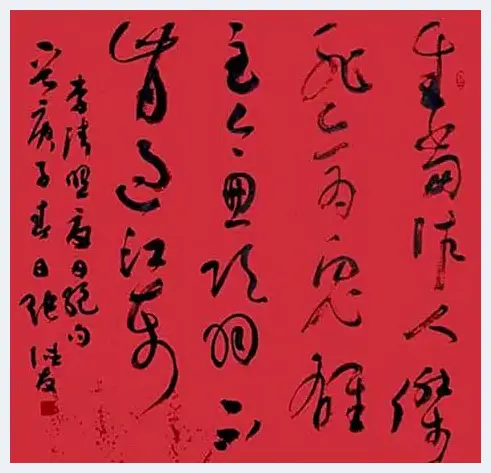 生當作人傑
死亦為鬼雄
至今思項羽不
肯過江東
李清照夏日絕句
庚子春日張